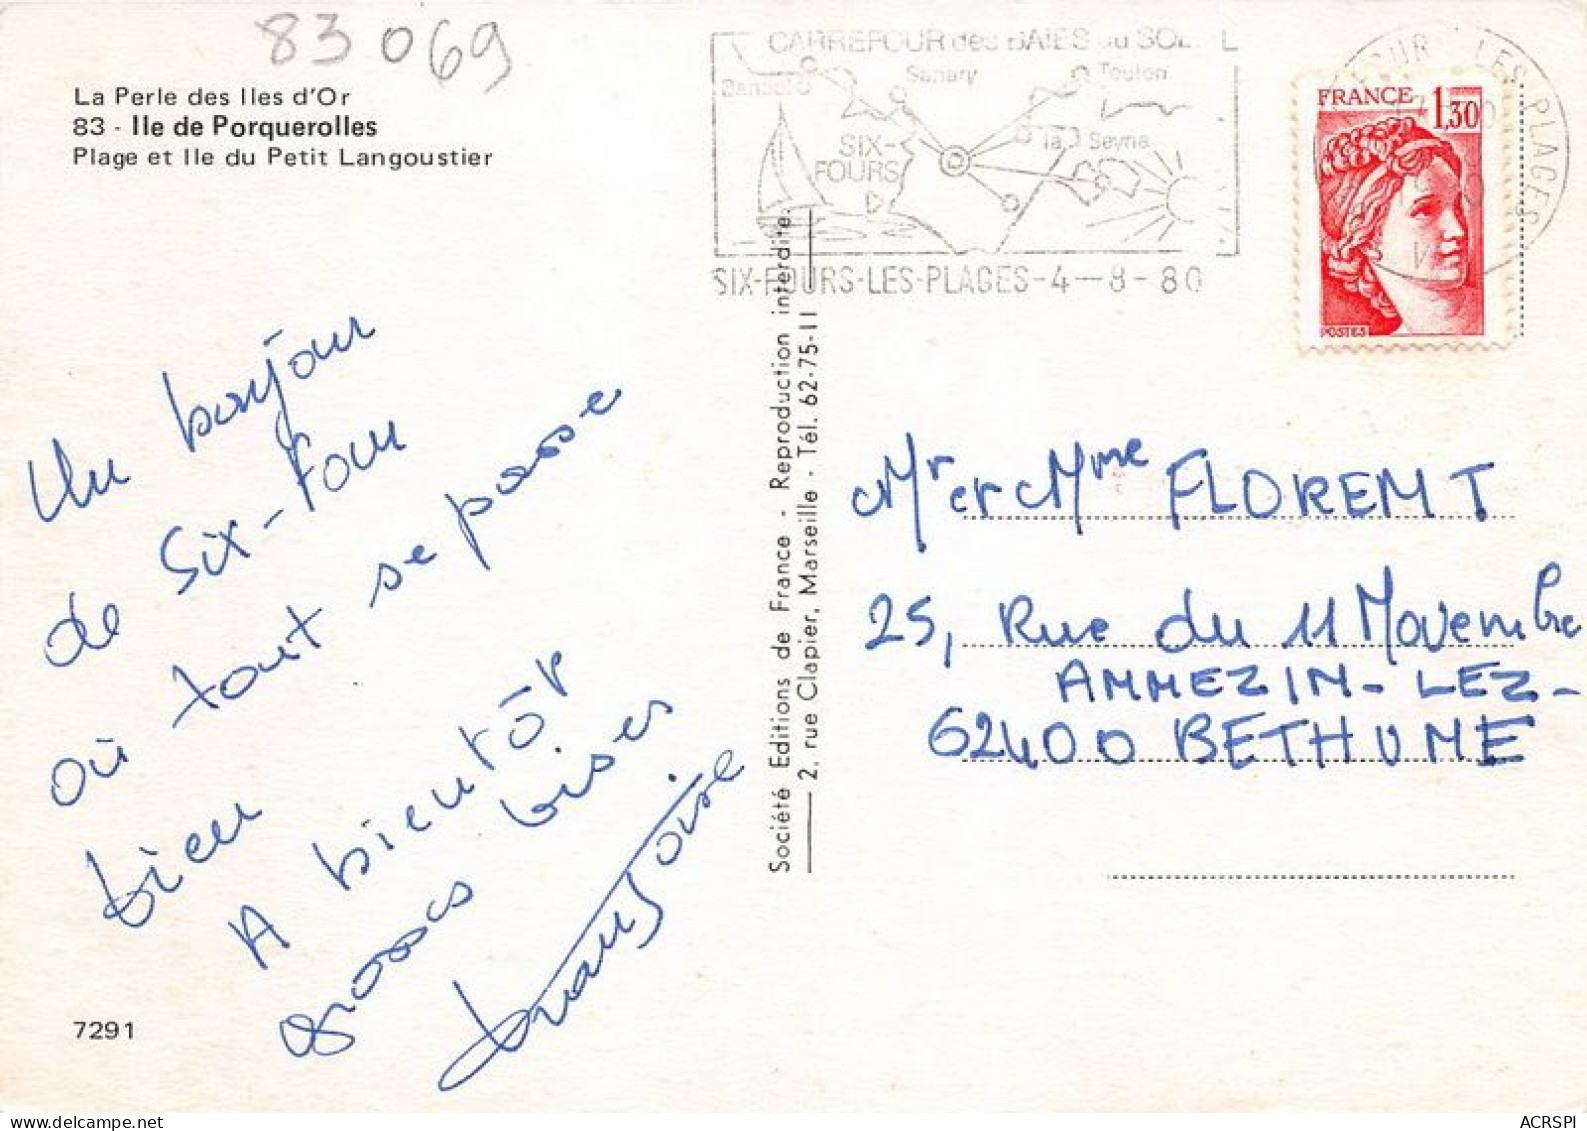 83069
La Perle des Iles d'Or
83 - Ile de Porquerolles
Plage et Ile du Petit Langoustier
CARREFOUR des BAIES du SOLEIL
Bandol
Sanary
Toulon
SIX-
FOURS
la Seyne
SIX-FOURS-LES-PLAGES-4-8-80
LES PLAGES
FRANCE 1,30
POSTES
Un bonjour
de Six-Four
où tout se passe
bien
A bientôt
grosses bises
Françoise
7291
Société Editions de France - Reproduction interdite.
2, rue Clapier, Marseille - Tél. 62-75-11
Mr et Mme FLORENT
25, Rue du 11 Novembre
ANNEZIN-LEZ-
62400 BETHUNE
ACRSPI